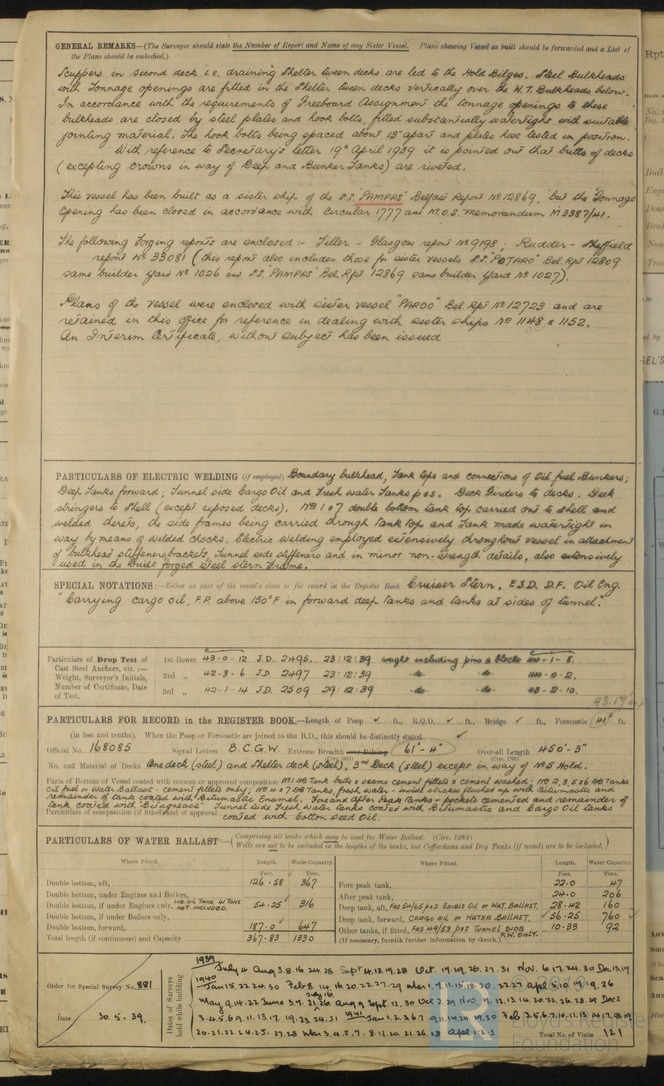 GENERAL REMARKS—(The Surveyor should state the Number of Report and Name of any Sister Vessel. Plans showing Vessel as built should be forwarded and a List of
the Plans should be embodied.)
Scuppers in second deck i.e. draining Shelter tween decks are led to the Hold Bilges. Steel Bulkheads
with Tonnage openings are fitted in the Shelter tween decks vertically over the W.T. Bulkheads below.
In accordance with the requirements of Freeboard Assignment the tonnage openings to these
bulkheads are closed by steel plates and hook bolts, fitted substantially watertight with suitable
jointing material. The hook bolts being spaced about 13" apart and plates hose tested in position.
With reference to Secretary's letter 19th April 1939 it is pointed out that butts of decks
(excepting crowns in way of Deep and Bunker Tanks) are riveted.
This vessel has been built as a sister ship of the S.S. "PAMPAS" Belfast Report No 12869, but the Tonnage
opening has been closed in accordance with Circular 1777 and M.O.S. Memorandum M 3387/41.
The following Forging reports are enclosed :- Tiller - Glasgow report No 9198 ; Rudder - Sheffield
report No 33081 (this report also includes those for sister vessels S.S. "POTARO" Bel. Rpt 12809
same builder Yard No 1026 and S.S. "PAMPAS" Bel. Rpt 12869 same builder Yard No 1027).
Plans of the vessel were enclosed with sister vessel "PARDO" Bel. Rpt No 12723 and are
retained in this office for reference in dealing with sister ships No 1148 & 1152.
An Interim Certificate, without subject has been issued
PARTICULARS OF ELECTRIC WELDING (if employed) Boundary bulkhead, Tank tops and connections of Oil fuel Bunkers;
Deep Tanks forward; Tunnel side Cargo Oil and Fresh water Tanks p & s. Deck Girders to decks. Deck
stringers to Shell (except exposed decks). No 1 & 7 double bottom tank top carried out to shell and
welded thereto, the side frames being carried through tank top and Tank made watertight in
way by means of welded chocks. Electric welding employed extensively throughout vessel in attachment
of bulkhead stiffeners, brackets, Tunnel side stiffeners and in minor non-strength details, also extensively
used in the built forged steel stern frame.
SPECIAL NOTATIONS:—Either as part of the vessel's class or for record in the Register Book Cruiser Stern, E.S.D. D.F. Oil Eng.
"Carrying cargo oil, F.P. above 150°F in forward deep tanks and tanks at sides of tunnel."
Particulars of Drop Test of Cast Steel Anchors, viz.:— Weight, Surveyor's Initials, Number of Certificate, Date of Test.
1st Bower 43-0-12 J.D. 2495. 23:12:39 weight including pins & blocks 44-1-8.
2nd „ 42-3-6 J.D. 2497 23:12:39 -do- -do- 44-0-2.
3rd „ 42-1-14 J.D. 2509 29:12:39 -do- -do- 43-2-10.
PARTICULARS FOR RECORD in the REGISTER BOOK.—Length of Poop ✓ ft., R.Q.D. ✓ ft., Bridge ✓ ft., Forecastle 41 ft.
(in feet and tenths). When the Poop or Forecastle are joined to the B.D., this should be distinctly stated
Official No. 168085 Signal Letters B.C.G.W. Extreme Breadth 61'-4" Over-all Length 450'-3"
No. and Material of Decks One deck (steel) and Shelter deck (steel), 3rd Deck (steel) except in way of No 5 Hold.
Parts of Bottom of Vessel coated with cement or approved composition No 1 DB Tank butts & seams cement fillets & cement washed; No 2, 3, 5 & 6 DB Tanks
Oil fuel or Water Ballast - cement fillets only; No 4 & 7 DB Tanks, fresh water - inside strakes flushed up with Bitumastic and
remainder of tank coated with Bitumastic Enamel. Fore and After Peak Tanks - pockets cemented and remainder of
tank coated with "Bitugrease". Tunnel side Fresh Water tanks coated with Bitumastic and Cargo Oil tanks
Particulars of composition (if fitted) and of approval coated with Cotton seed Oil.
PARTICULARS OF WATER BALLAST:—(Comprising all tanks which may be used for Water Ballast. (Circ. 1284)
Wells are not to be included in the lengths of the tanks, but Cofferdams and Dry Tanks (if tested) are to be included.)
Where Fitted. Length. Water Capacity. Where Fitted. Length. Water Capacity.
Feet. Tons. Feet. Tons.
Double bottom, aft, 126.58 367 Fore peak tank, 22.0 47
Double bottom, under Engines and Boilers, After peak tank, 24.0 206
Double bottom, if under Engines only, LUB. OIL TANK IN TONS NOT INCLUDED. 54.25 316 Deep tank, aft, Frs 54/65 p & s EDIBLE OIL or WAT. BALLAST. 28.42 160
Double bottom, if under Boilers only, Deep tank, forward, CARGO OIL or WATER BALLAST. 56.25 760
Double bottom, forward, 187.0 647 Other tanks, if fitted, Frs 49/53 p & s TUNNEL SIDE F.W. ONLY. 10.33 92
Total length (if continuous) and Capacity 367.83 1330 (If necessary, furnish further information by sketch.)
Order for Special Survey No. 881
Date 30.5.39.
Dates of Surveys held while building
1939
July 4 Aug 3.8.16.24.28 Sept 4.13.19.28 Oct. 17.19.26.27.31 Nov. 6.17.24.30 Dec 13.19
1940
1941
Total No. of Visits 121
Lloyd's Register
Foundation